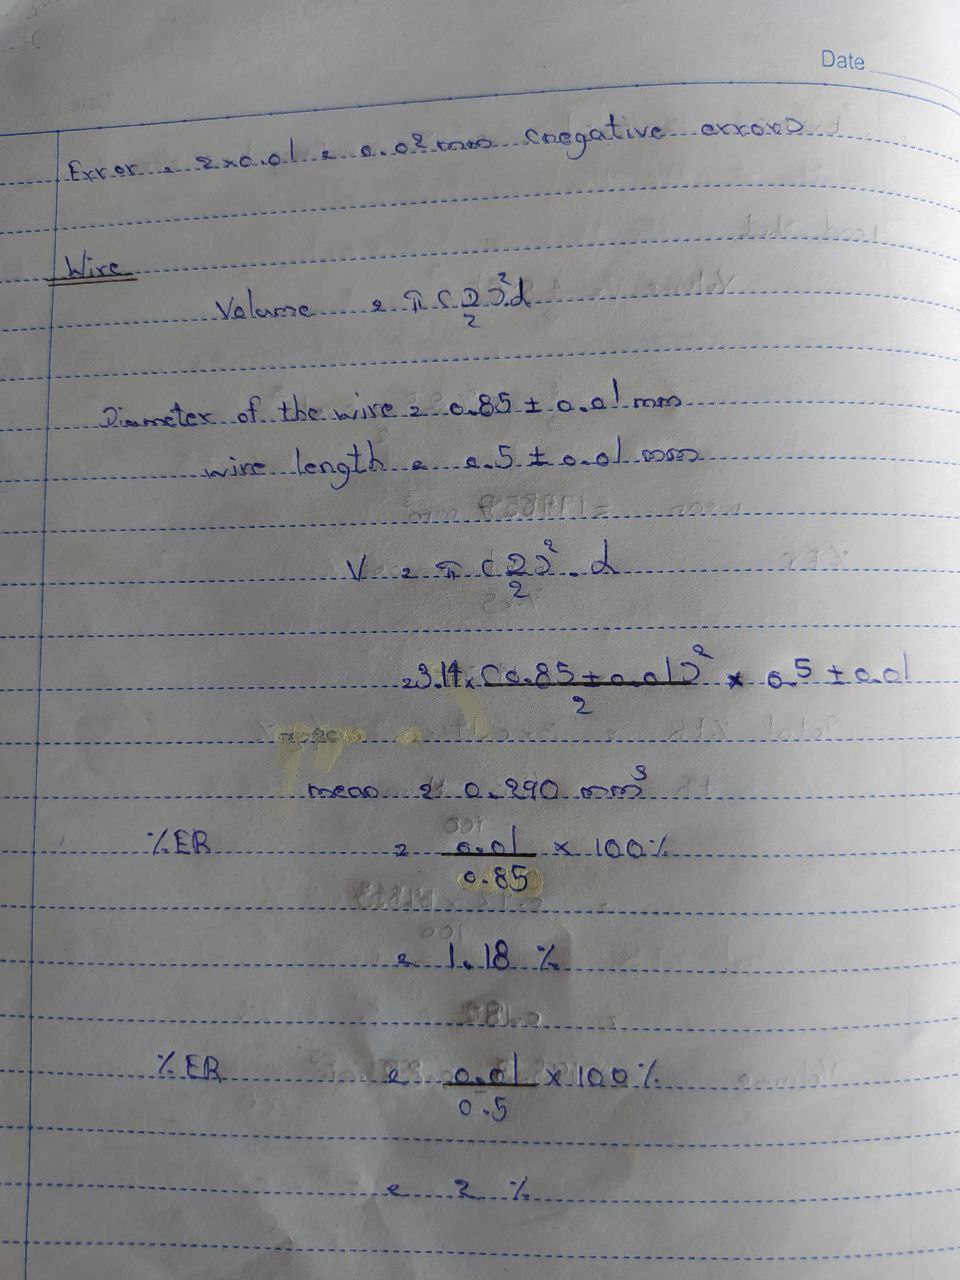 Date
Error = 2x0.01 = 0.02 mm (negative error)
Wire
Volume = π (D/2)².d
Diameter of the wire = 0.85 ± 0.01 mm
wire length = 0.5 ± 0.01 mm
V = π (D/2)² . d
=3.14x (0.85 ± 0.01)²/2 x 0.5 ± 0.01
mean = 0.290 mm³
%ER = 0.01/0.85 x 100%
= 1.18 %
%ER = 0.01/0.5 x 100%
= 2 %